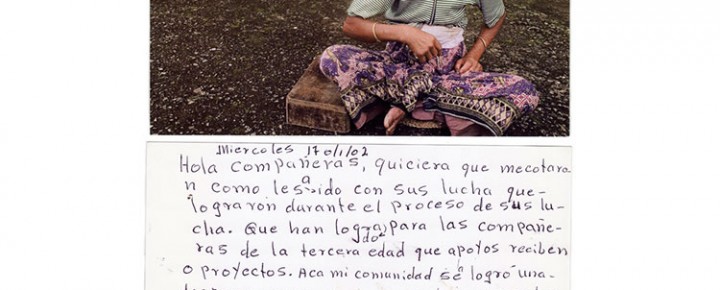 Miercoles
Hola compañeras, quiciera que mecotara
n como les a ido con sus lucha que-
lograron durante el proceso de sus lu-
cha. Que han logrado para las compañe-
ras de la tercera edad que apoyos reciben
o proyectos. Aca mi comunidad se a logró una-